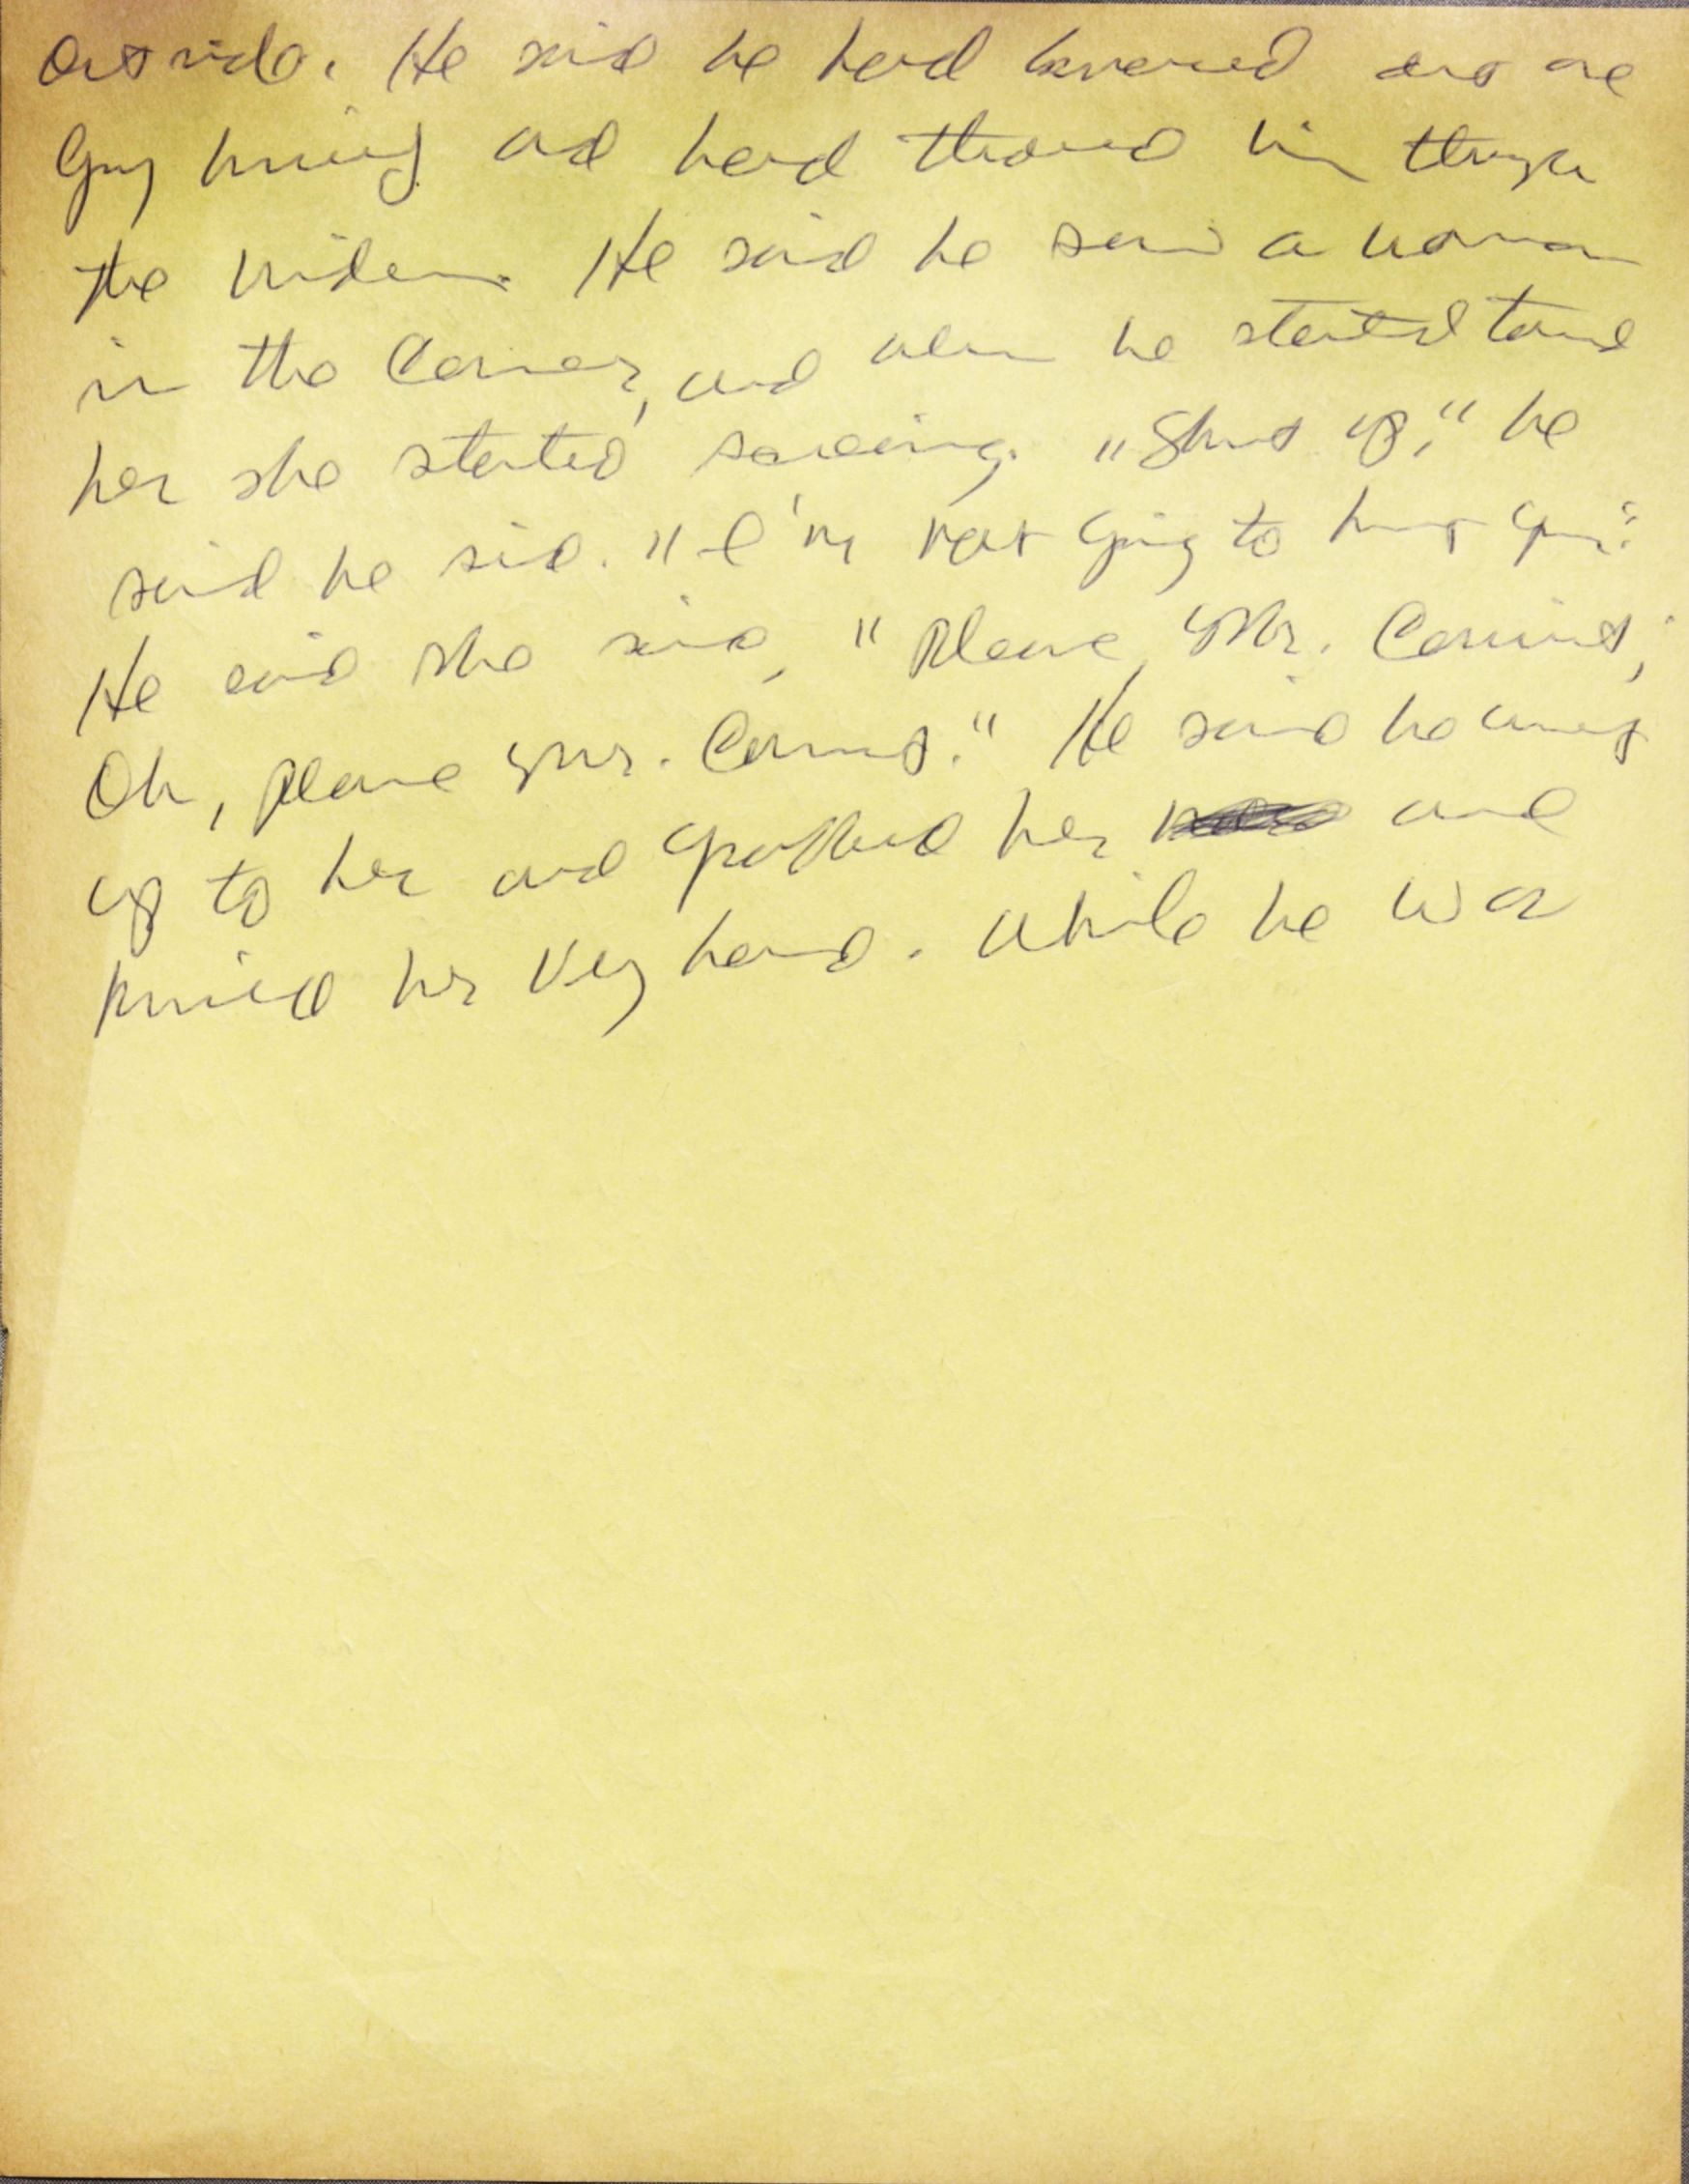 outside. He said he had knocked out one
guy and had throwed him through
the window. He said he saw a woman
in the corner, and when he started toward
her she started screaming. "Shut up," he
said he said. "I'm not going to hurt you."
He said she said, "Please, Mr.
Oh, please Mr. He said he went
up to her and grabbed her and
kissed her very hard. While he was